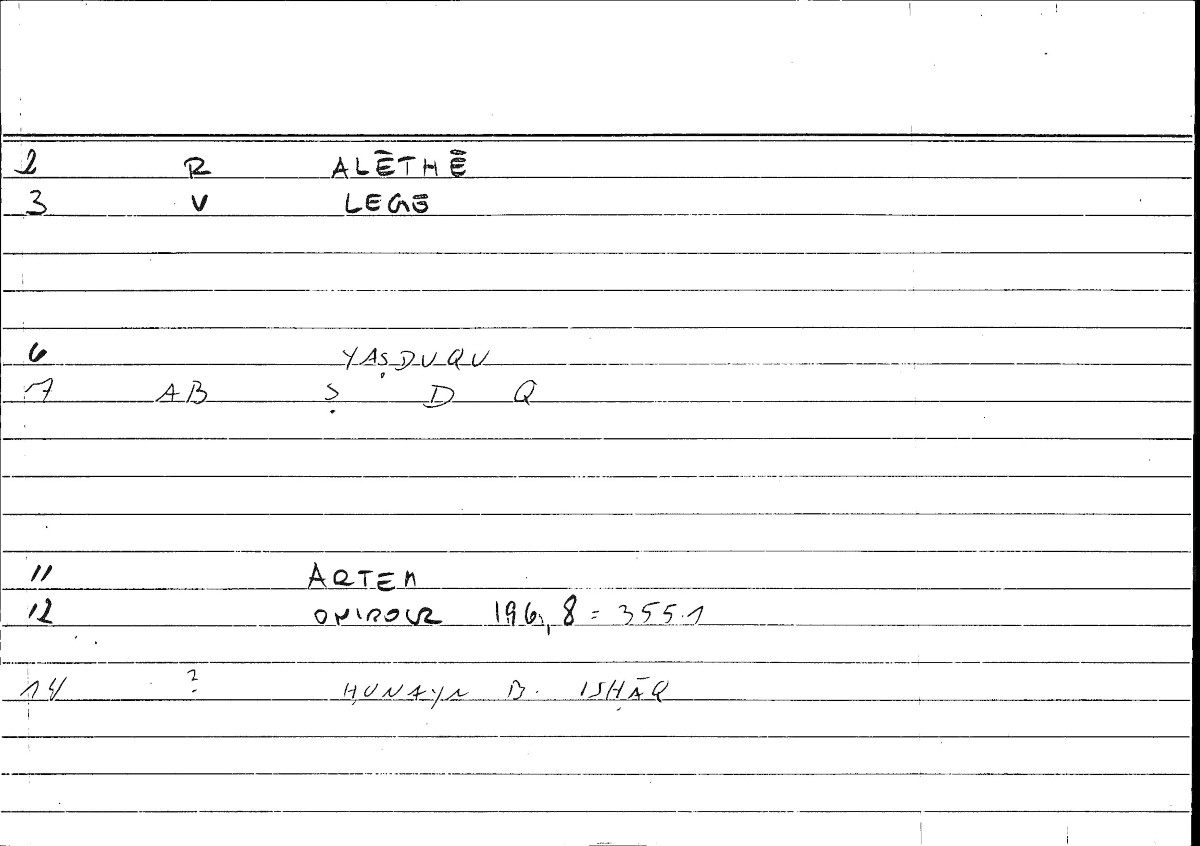 2 R ALĒTHĒ
3 V LEGĒ
6 YAṢDUQU
7 AB Ṣ D Q
11 ARTEM
12 ONIROCR 196,8 = 355.1
14 ? ḤUNAYN B. ISḤĀQ